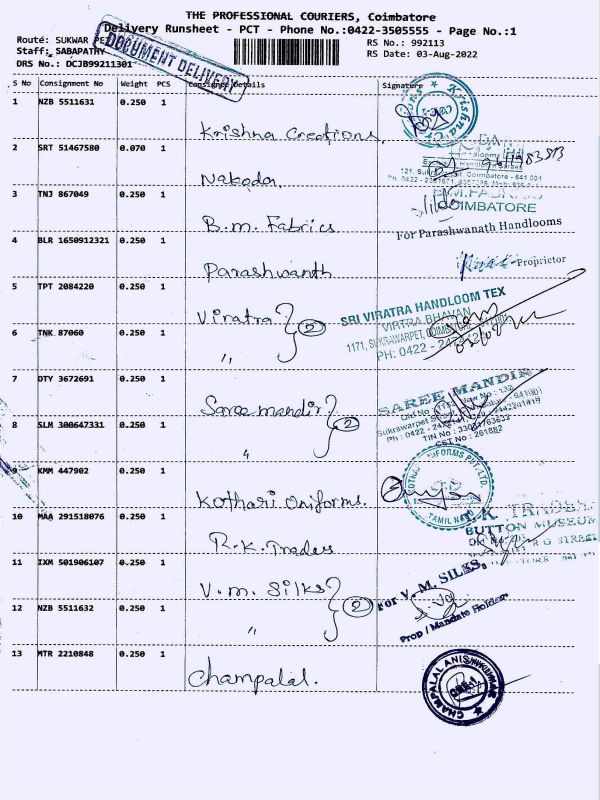 THE PROFESSIONAL COURIERS, Coimbatore
Delivery Runsheet - PCT - Phone No.:0422-3505555 - Page No.:1
Route: SUKWAR PET
RS No.: 992113
Staff: SABAPATHY
RS Date: 03-Aug-2022
DRS No.: DCJB99211301
DOCUMENT DELIVERY
S No Consignment No Weight PCS Consignee Details Signature
1 NZB 5511631 0.250 1
Krishna Creations,
2 SRT 51467580 0.070 1
Nakoda.
121, Coimbatore - 641 001
3 TNJ 867049 0.250 1
B.M. Fabrics
B.M.FABRICS
COIMBATORE
4 BLR 1650912321 0.250 1
For Parashwanath Handlooms
Parashwanth
Proprietor
5 TPT 2084220 0.250 1
Viratra 2
SRI VIRATRA HANDLOOM TEX
VIRTRA BHAVAN
1171, SUKRAWARPET,
PH: 0422 -
6 TNK 87060 0.250 1
"
7 DTY 3672691 0.250 1
Saree mandir 2
SAREE MANDIR
Sukrawarpet
Ph : 0422 -
TIN No : 33081763632
CST No : 261882
8 SLM 300647331 0.250 1
"
9 KMM 447902 0.250 1
Kothari Uniforms.
KOTHARI UNIFORMS PVT. LTD.
TAMIL NADU
10 MAA 291518076 0.250 1
R.K. Trades
R.K. TRADES
BUTTON MUSEUM
R G STREET
11 IXM 501906107 0.250 1
V.M. Silks 2
For V. M. SILKS,
Prop / Mandate Holder
12 NZB 5511632 0.250 1
"
13 MTR 2210848 0.250 1
Champalal.
CHAMPALAL ANISHKUMAR
CBE-1